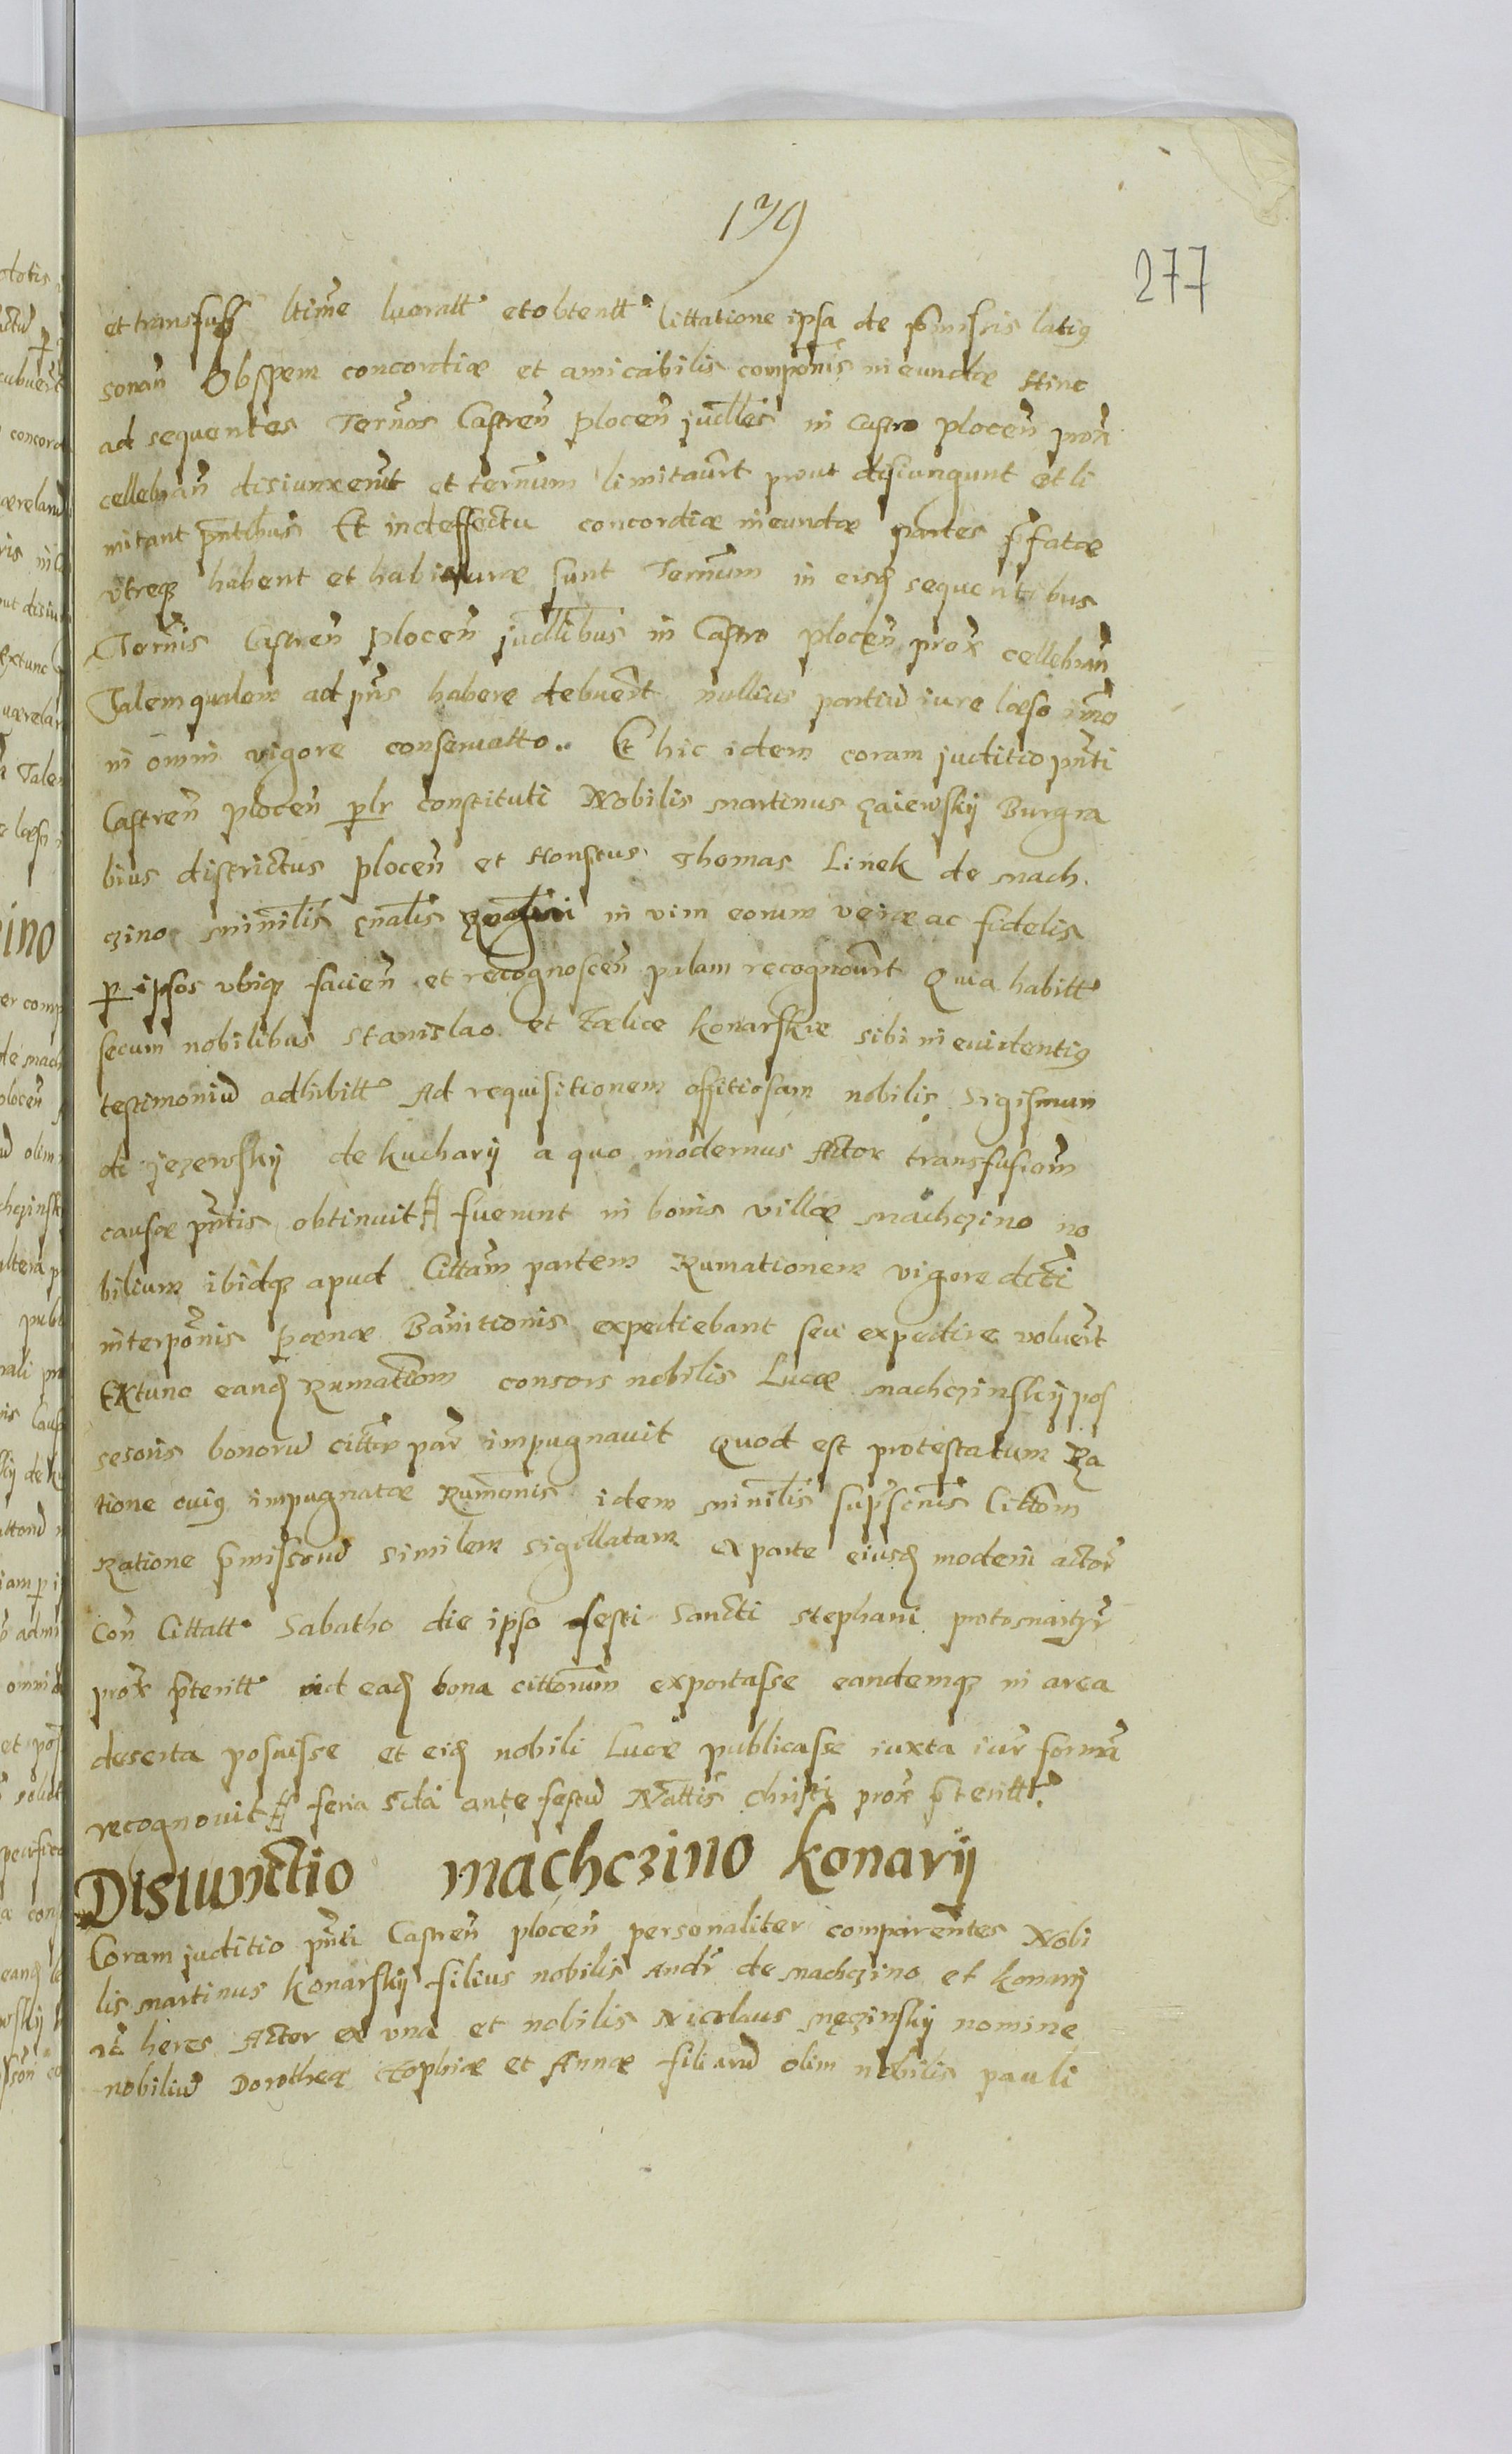 139
277
et transfuss ltime lucratt etobtentt littatione ipsa de pmissis latiq
sonan Obspem concordiæ et amicabilis componis ineundæ Hinc
ad sequentes Termos Castren plocen judlles in Castro plocen prox
cellebran disiunxerut et termum limitavrt prout disiungunt et li
mitant pntibus Et indeffectu concordiæ ineundæ partes pfatæ
vtreqз habent et habituræ sunt Termum in eisd sequentibus
Termis Castren plocen judllibus in Castro plocen prox cellebran
Talemqualem ad pns habere debuert nullius partiu iure læso imo
in omni vigore conservatto .. Et hic idem coram juditio pnti
Castren plocen plr constituti Nobilis Martinus Gaiewskij Burgra
bius districtus plocen et Honstus Thomas Linek de Mach
czino Minilis gnalis Regni in vim eorum veræ ac fidelis
p ipsos vbiqз facien et recognoscen palam recognovrt Quia habitt
secum nobilibus Stanislao et Fælice Konarskie sibi in evidentiq
testimoniu adhibitt Ad requisitionem offitiosam nobilis Sigismun
di jezewskij de Kucharij a quo modernus Actor transfusiom
causæ pntis obtinuit # fuerunt in bonis villæ Machczino no
bilium ibidqз apud Cittam partem Rumationem vigore dicti
interponis pœnæ Banitionis expediebant seu expedire voluert
Extunc eand Rumatiom consors nobilis Lucæ Machczinskij pos
sesoris bonoru citte par impugnavit Quod est protestatum Ra
tione cuiq impugnatæ Rumonis idem Minilis supscus Cittom
Ratione pmissoru similem sigillatam ex parte eiusd moderni actor
Con Cittatt Sabatho die ipso festi Sancti Stephani protomartyr
prox pteritt ad ead bona cittorum exportasse eandemqз in area
deserta posuisse et eid nobili Lucæ publicasse iuxta iur forma
recognovit # feria 5cta ante festu Nattis Christi prox pteritt
Disiunctio Machczino Konarij
Coram juditio pnti Castren plocen personaliter comparentes Nobi
lis Martinus Konarskij filius nobilis Andr de Machczino et Konarij
heres Actor ex vna et nobilis Nicolaus Męczinskij nomine
nobiliu Dorotheæ Zophiæ et Annæ filiaru olim nobilis pauli